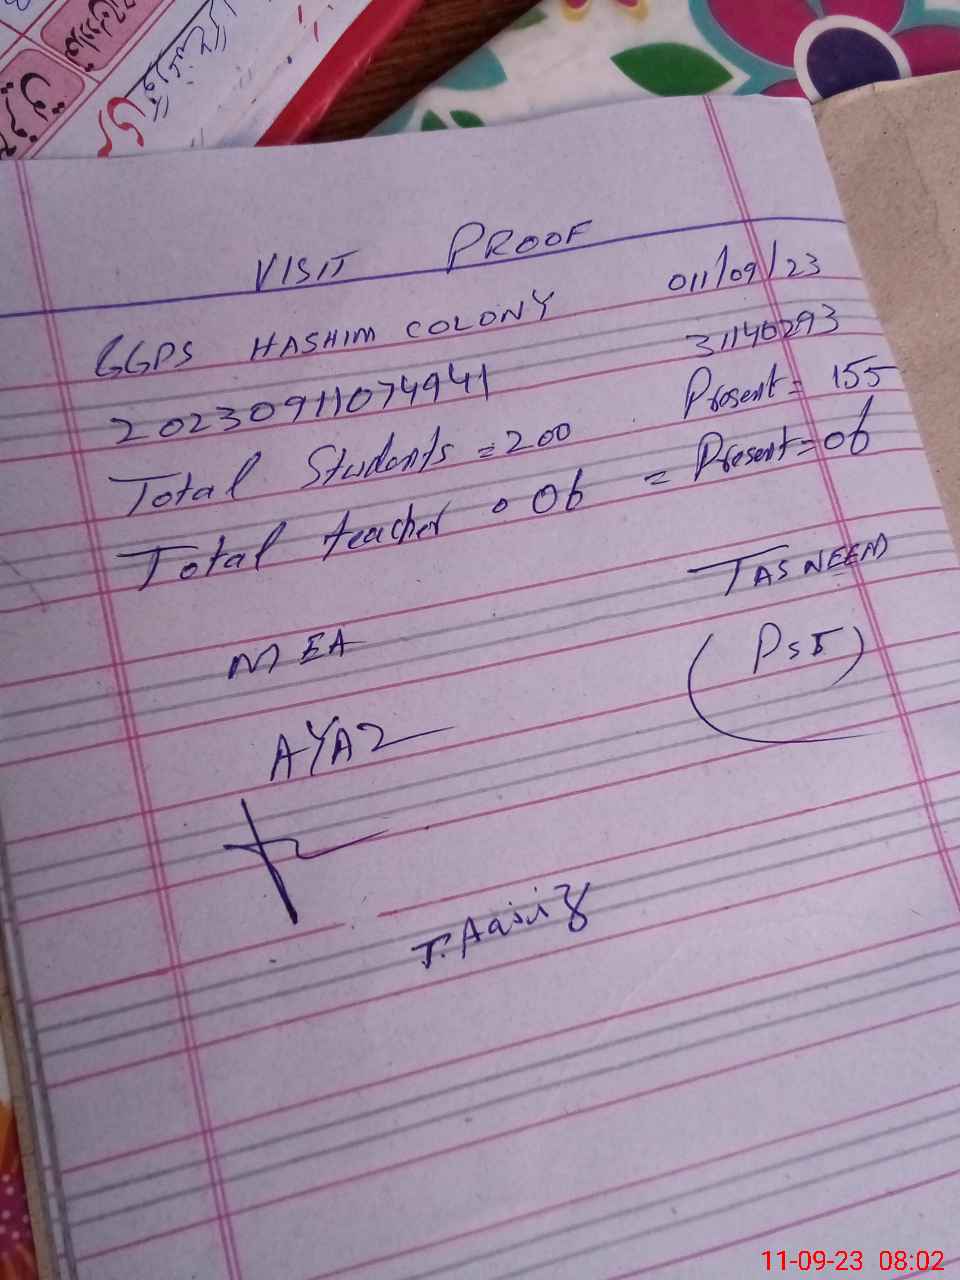 VISIT PROOF
GGPS HASHIM COLONY 011/09/23
20230911074941 31140293
Total Students = 200 Present = 155
Total teacher = 06 = Present = 06
MEA TASNEEM
(PST)
AYAZ
11-09-23 08:02